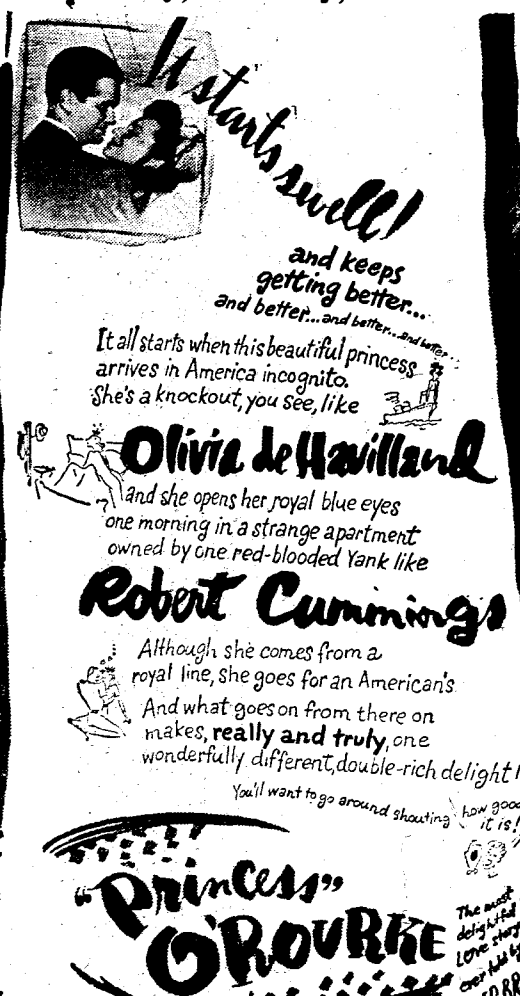 It starts swell!
and keeps
getting better...
and better...and better...and better...
It all starts when this beautiful princess
arrives in America incognito.
She's a knockout, you see, like
Olivia de Havilland
and she opens her royal blue eyes
one morning in a strange apartment
owned by one red-blooded Yank like
Robert Cummings
Although she comes from a
royal line, she goes for an American's.
And what goes on from there on
makes, really and truly, one
wonderfully different, double-rich delight!
You'll want to go around shouting how good
it is!
"Princess"
O'ROURKE
The most
delightful
Love story
ever told by